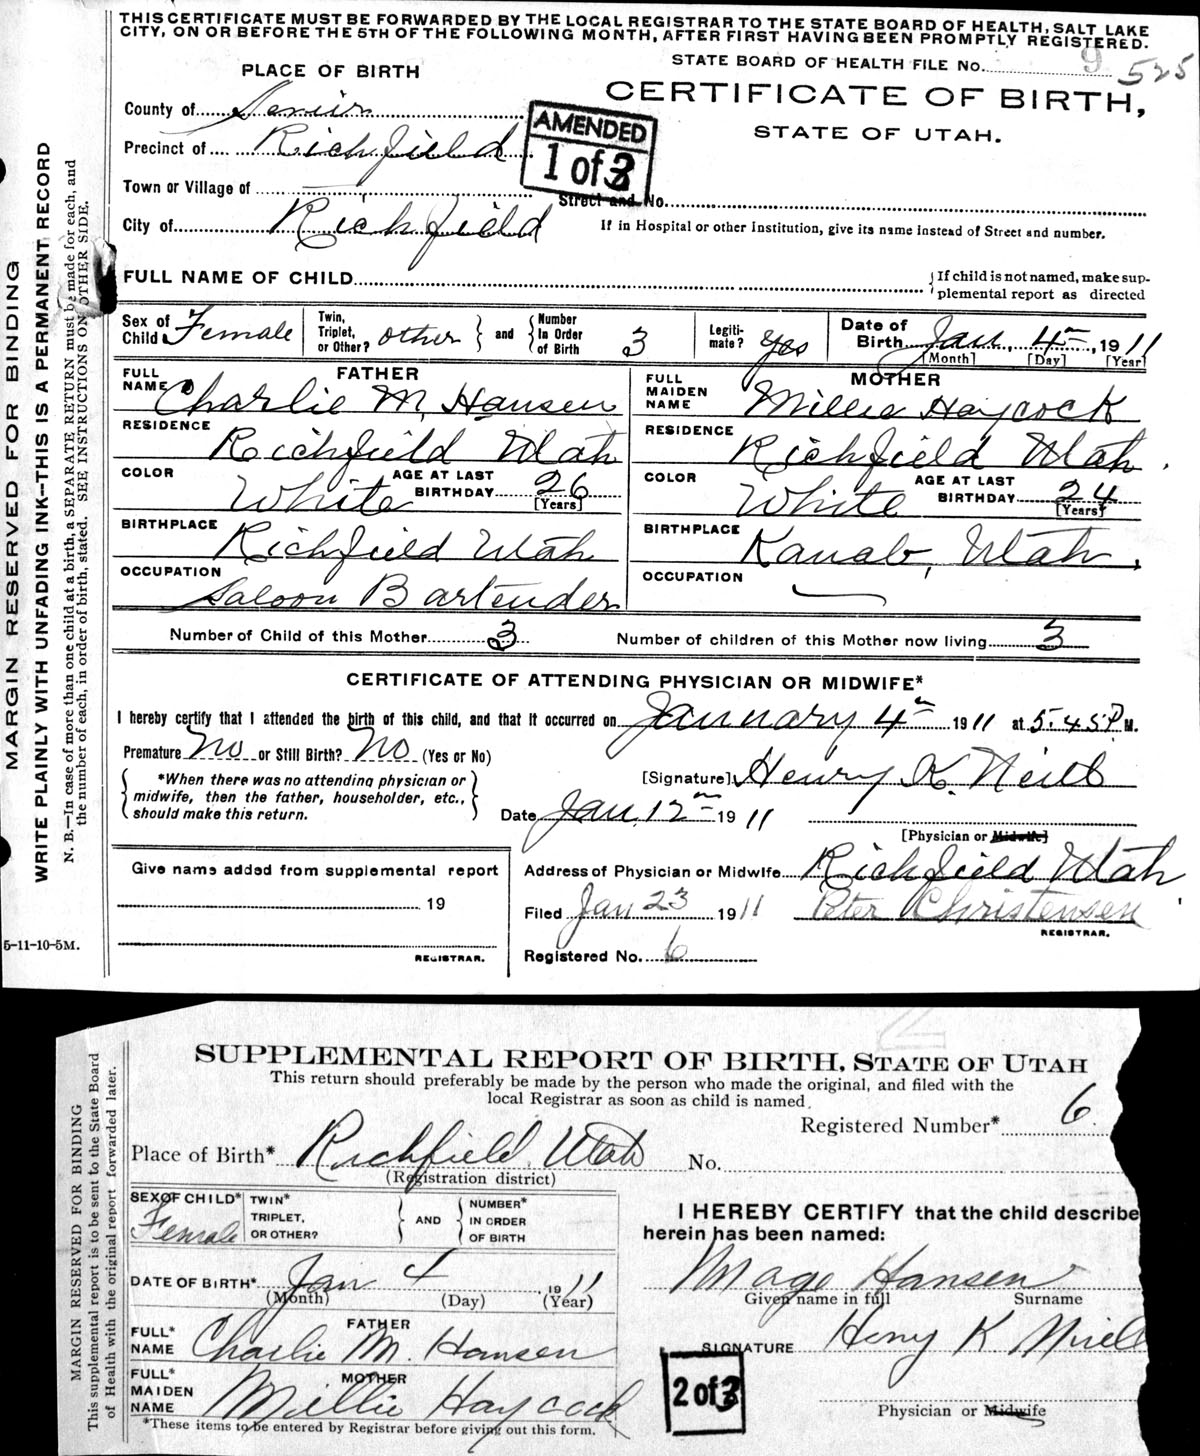 THIS CERTIFICATE MUST BE FORWARDED BY THE LOCAL REGISTRAR TO THE STATE BOARD OF HEALTH, SALT LAKE
CITY, ON OR BEFORE THE 5TH OF THE FOLLOWING MONTH, AFTER FIRST HAVING BEEN PROMPTLY REGISTERED.
STATE BOARD OF HEALTH FILE No. 9 525
PLACE OF BIRTH
CERTIFICATE OF BIRTH,
STATE OF UTAH.
County of Sevier
AMENDED
1 of 3
Precinct of Richfield
Town or Village of
Street and No.
City of Richfield
If in Hospital or other Institution, give its name instead of Street and number.
FULL NAME OF CHILD
If child is not named, make sup-
plemental report as directed
Sex of Child Female
Twin, Triplet, or Other? other
and
Number in Order of Birth 3
Legiti-mate? Yes
Date of Birth Jan. 4th, 1911
[Month] [Day] [Year]
FATHER
FULL NAME Charlie M. Hansen
RESIDENCE Richfield Utah
COLOR White
AGE AT LAST BIRTHDAY 26
[Years]
BIRTHPLACE Richfield Utah
OCCUPATION Saloon Bartender
MOTHER
FULL MAIDEN NAME Millie Haycock
RESIDENCE Richfield Utah.
COLOR White
AGE AT LAST BIRTHDAY 24
[Years]
BIRTHPLACE Kanab, Utah.
OCCUPATION
Number of Child of this Mother 3
Number of children of this Mother now living 3
CERTIFICATE OF ATTENDING PHYSICIAN OR MIDWIFE*
I hereby certify that I attended the birth of this child, and that it occurred on January 4th 1911 at 5:45 P. M.
Premature No or Still Birth? No (Yes or No)
*When there was no attending physician or
midwife, then the father, householder, etc.,
should make this return.
[Signature] Henry K. Neill
Date Jan. 12th 1911
[Physician or Midwife]
Give name added from supplemental report
19
REGISTRAR.
Address of Physician or Midwife Richfield Utah
Filed Jan 23 1911 Peter Christensen
REGISTRAR.
Registered No. 6
5-11-10-5M.
MARGIN RESERVED FOR BINDING
WRITE PLAINLY WITH UNFADING INK--THIS IS A PERMANENT RECORD
N. B.—In case of more than one child at a birth, a SEPARATE RETURN must be made for each, and
the number of each, in order of birth, stated. SEE INSTRUCTIONS ON OTHER SIDE.
SUPPLEMENTAL REPORT OF BIRTH, STATE OF UTAH
This return should preferably be made by the person who made the original, and filed with the
local Registrar as soon as child is named.
Registered Number* 6
Place of Birth* Richfield, Utah No.
(Registration district)
SEX OF CHILD* Female
TWIN* TRIPLET, OR OTHER?
AND
NUMBER* IN ORDER OF BIRTH
DATE OF BIRTH* Jan 4 1911
(Month) (Day) (Year)
FATHER
FULL* NAME Charlie M. Hansen
MOTHER
FULL* MAIDEN NAME Millie Haycock
*These items to be entered by Registrar before giving out this form.
I HEREBY CERTIFY that the child describe
herein has been named:
Mage Hansen
Given name in full Surname
SIGNATURE Henry K Niell
2 of 3
Physician or Midwife
MARGIN RESERVED FOR BINDING
This supplemental report is to be sent to the State Board
of Health with the original report forwarded later.